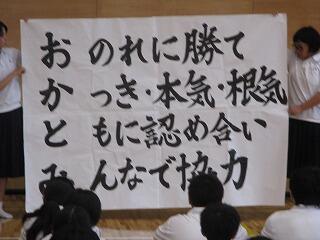 おのれに勝て
かっき・本気・根気
ともに認め合い
みんなで協力